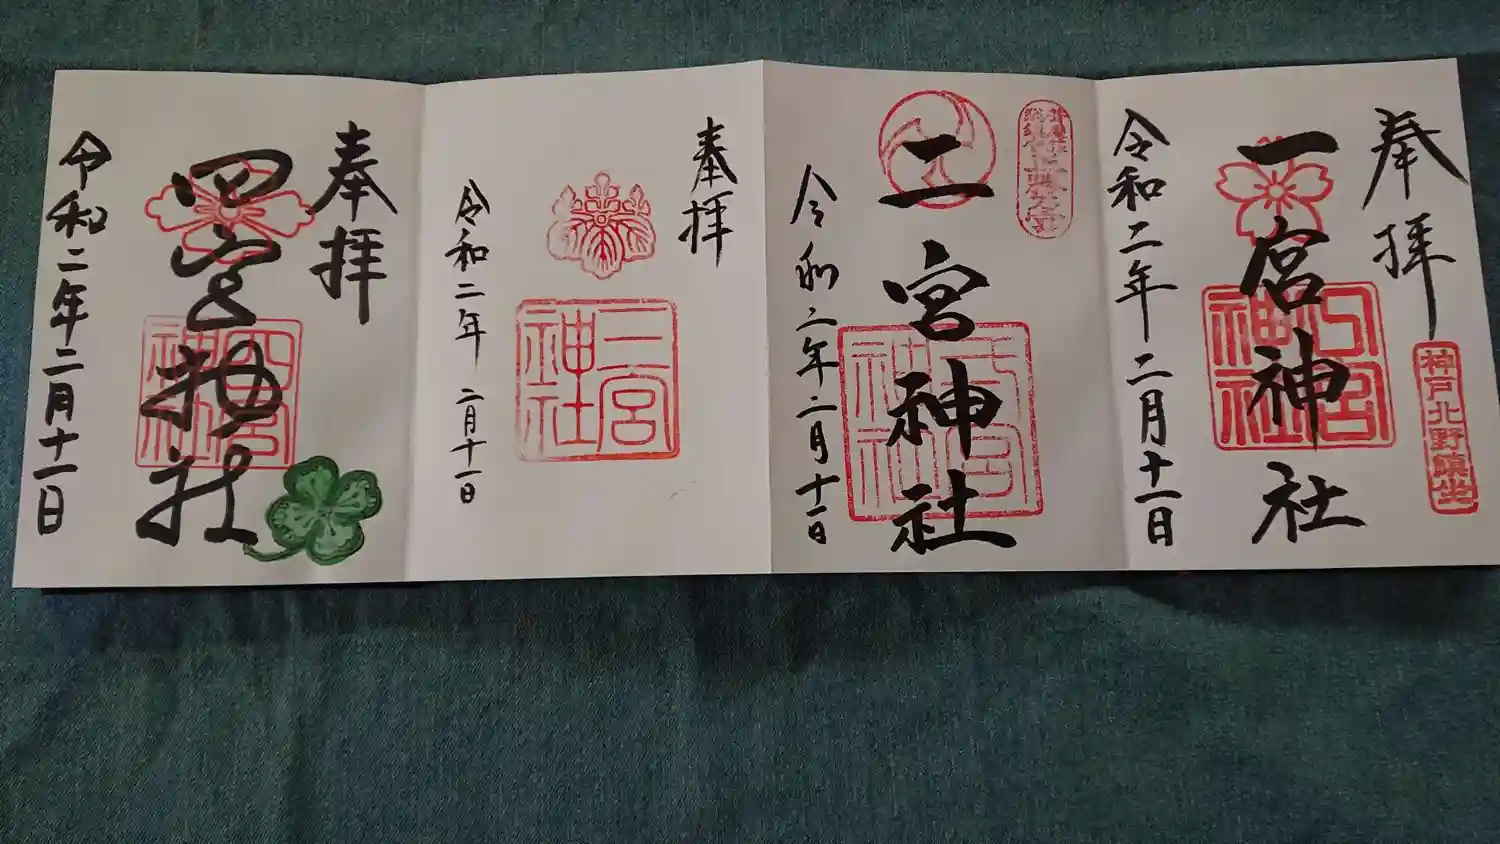 奉拝
神戸北野鎮坐
一宮神社
令和二年二月十一日
二宮神社
令和二年二月十一日
奉拝
三宮
神社
令和二年二月十一日
奉拝
四宮神社
四宮
神社
令和二年二月十一日